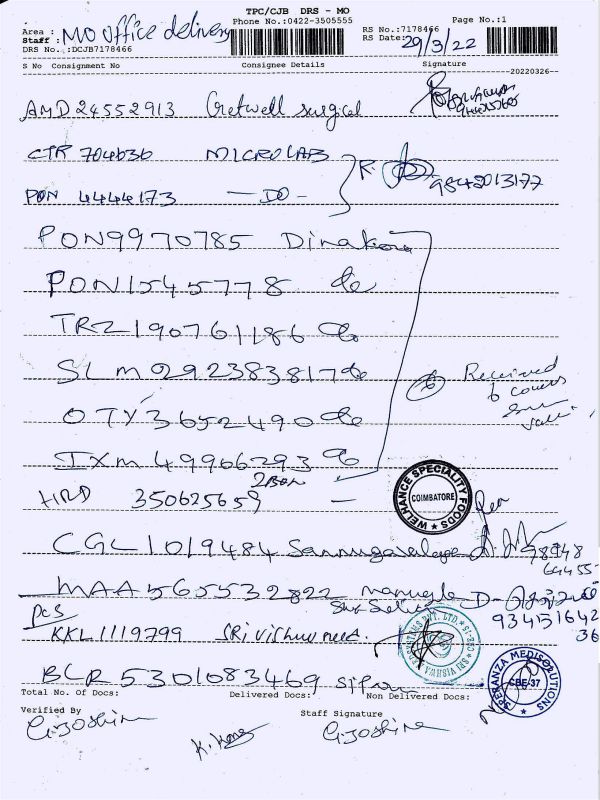 TPC/CJB DRS - MO
Phone No.:0422-3505555
Page No.:1
Area : MO office delivery
Staff :
DRS No.:DCJB7178466
RS No.:7178466
RS Date: 29/3/22
S No Consignment No Consignee Details Signature
20220326
AMD 24552913 Gretwell surgical
CTR 704636 MICROLAB
R. 9842013177
PON 4444173 — DO —
PON 9970785 Dinakara
PON 15457778 do
TRZ 190761186 do
SLM 029238381 do
OTY 3652490 do
6 Received
6 covers
IXM 49966293 do
2 Box
HRD 350625659 —
WELHANCE SPECIALITY FOODS
COIMBATORE
CGL 1019484
98948
64455
MAA 565532822
934151642
36
PCS
KKL 1119799 SRI Vishnu
BLR 5301083469
SPERANZA MEDISOLUTIONS
CBE-37
Total No. Of Docs: Delivered Docs: Non Delivered Docs:
Verified By Staff Signature
G.Joshine G.Joshine